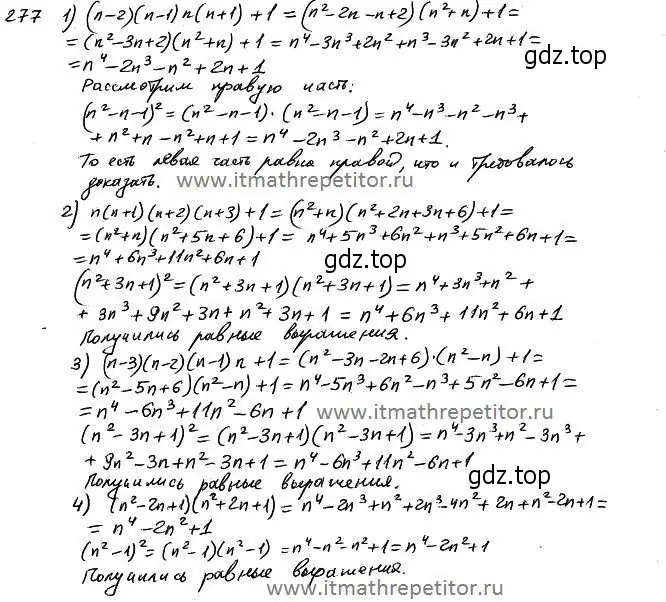 277 1) (n-2)(n-1)n(n+1)+1=(n²-2n-n+2)(n²+n)+1=
=(n²-3n+2)(n²+n)+1=n⁴-3n³+2n²+n³-3n²+2n+1=
=n⁴-2n³-n²+2n+1
gdz.top
Рассмотрим правую часть:
(n²-n-1)²=(n²-n-1)·(n²-n-1)=n⁴-n³-n²-n³+
+n²+n-n²+n+1=n⁴-2n³-n²+2n+1.
То есть левая часть равна правой, что и требовалось
доказать. www.itmathrepetitor.ru
2) n(n+1)(n+2)(n+3)+1=(n²+n)(n²+2n+3n+6)+1=
=(n²+n)(n²+5n+6)+1=n⁴+5n³+6n²+n³+5n²+6n+1=
=n⁴+6n³+11n²+6n+1
gdz.top
(n²+3n+1)²=(n²+3n+1)(n²+3n+1)=n⁴+3n³+n²+
+3n³+9n²+3n+n²+3n+1=n⁴+6n³+11n²+6n+1
Получились равные выражения.
3) (n-3)(n-2)(n-1)n+1=(n²-3n-2n+6)·(n²-n)+1=
=(n²-5n+6)(n²-n)+1=n⁴-5n³+6n²-n³+5n²-6n+1=
=n⁴-6n³+11n²-6n+1 www.itmathrepetitor.ru
(n²-3n+1)²=(n²-3n+1)(n²-3n+1)=n⁴-3n³+n²-3n³+
+9n²-3n+n²-3n+1=n⁴-6n³+11n²-6n+1
Получились равные выражения. gdz.top
4) (n²-2n+1)(n²+2n+1)=n⁴-2n³+n²+2n³-4n²+2n+n²-2n+1=
=n⁴-2n²+1
(n²-1)²=(n²-1)(n²-1)=n⁴-n²-n²+1=n⁴-2n²+1
Получились равные выражения.
www.itmathrepetitor.ru